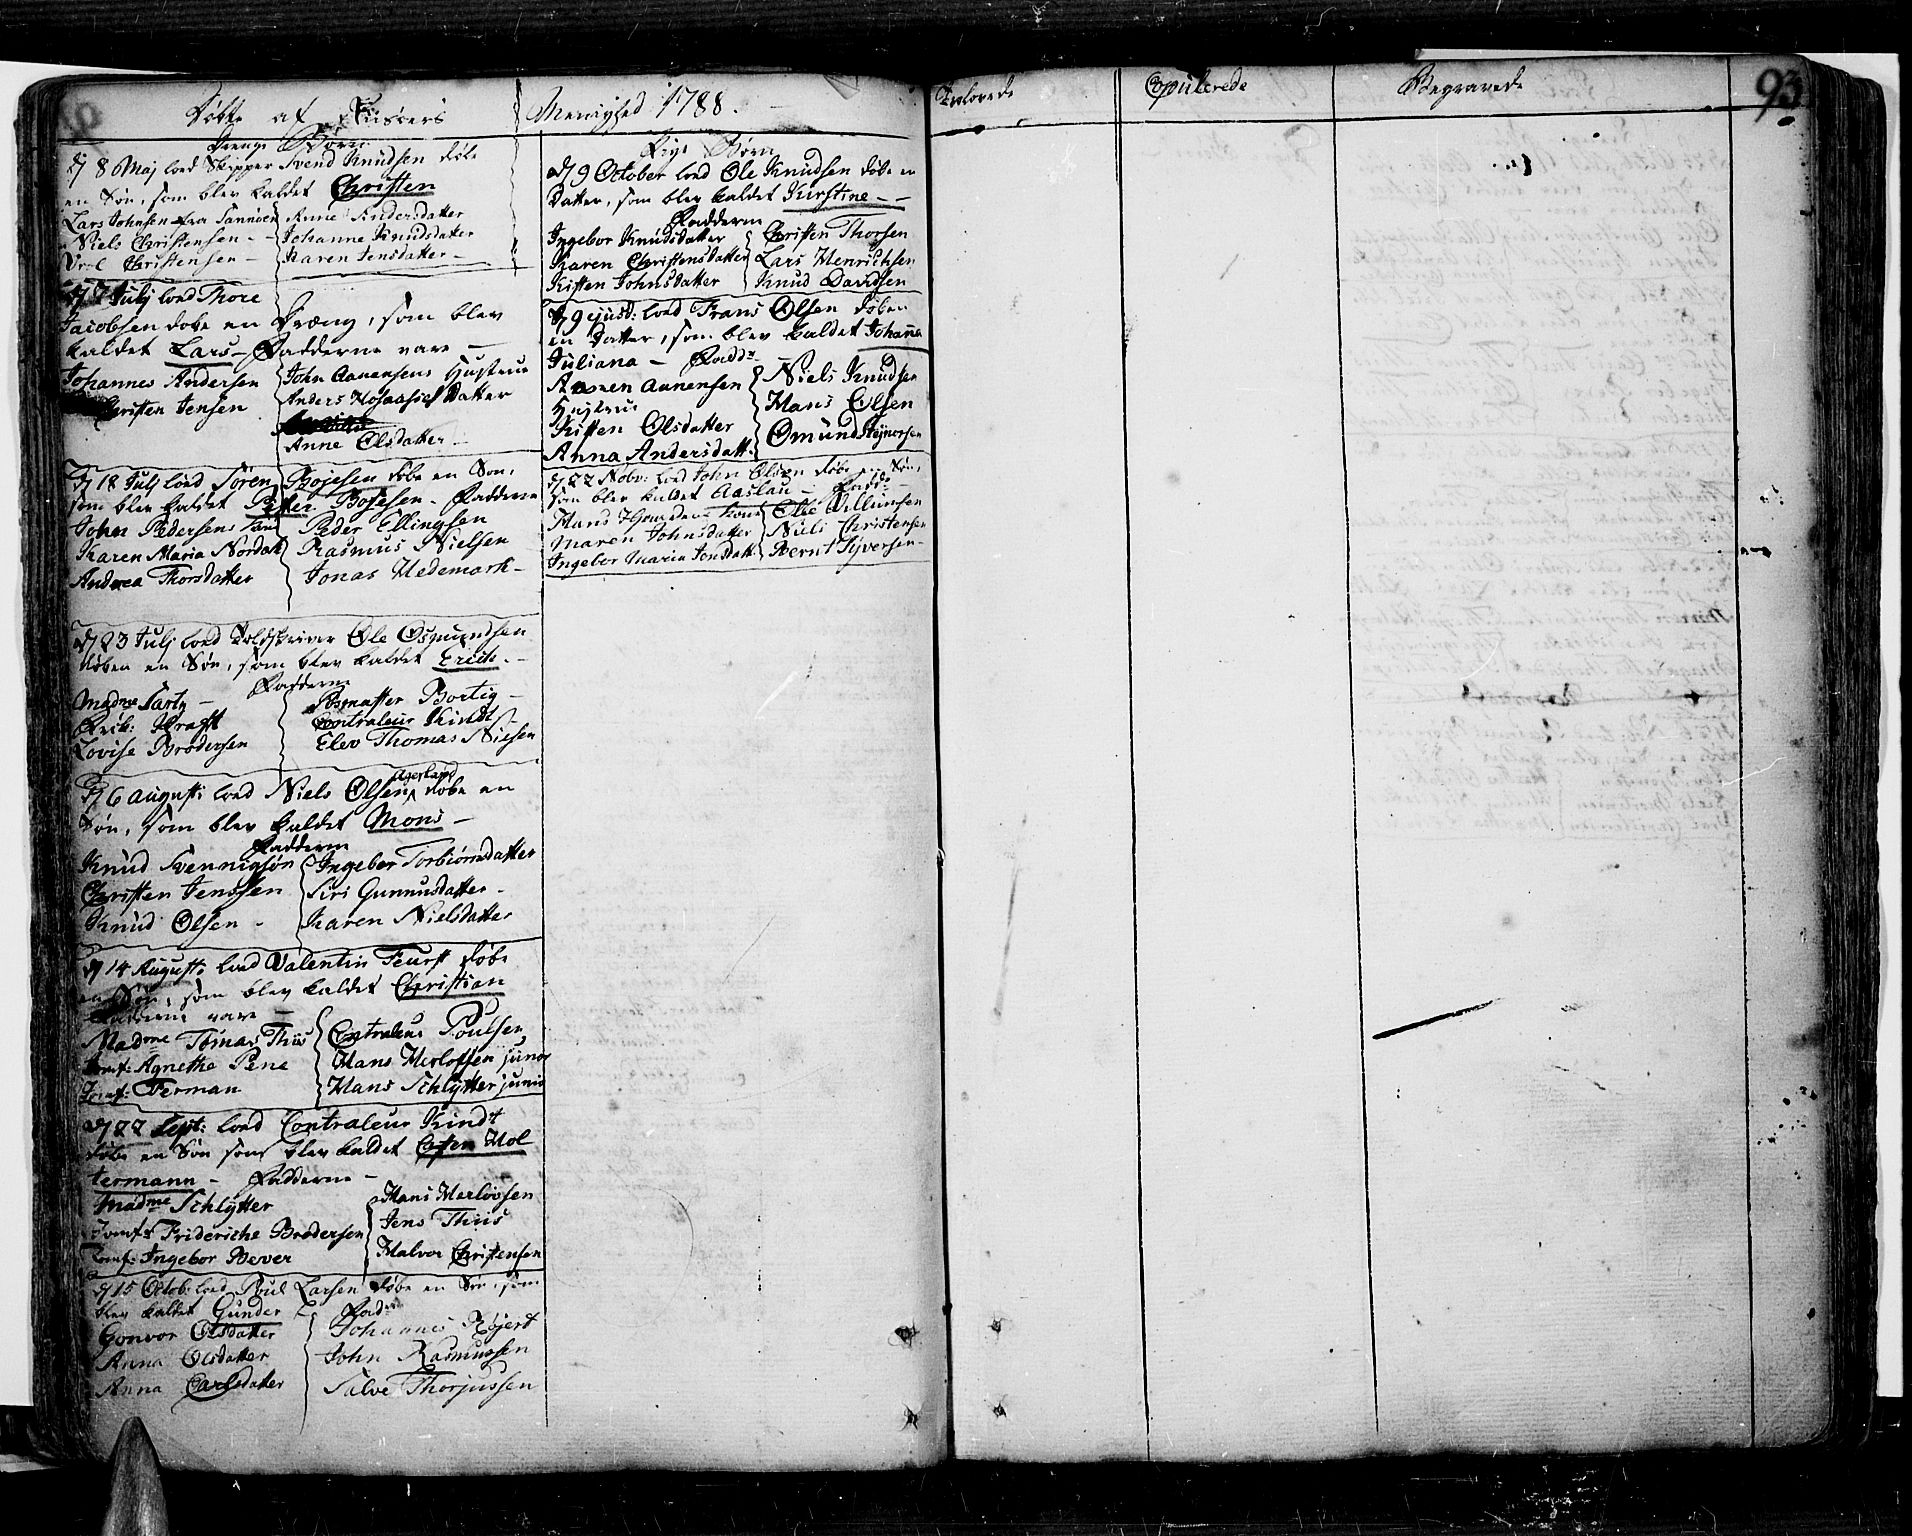 Døbte af Riisøers Menighed 1788.
Drenge Børn
d 8 Maj lod Skipper Svend Knudsen døbe
en Søn, som blev kaldet Christen
Lars Johnsen fra Sannøen Anne Andersdatter
Niels Christensen - Johanne Knudsdatter
Christensen - Karen Jensdatter -
Julj lod Thore
Jacobsen døbe en Dræng, som blev
kaldet Lars - Fadderne vare -
Johannes Andersen John Aanensens Hustrue
Christen Jensen Anders Datter
Anne Olsdatter -
d 18 Julj lod Søren Bojesen døbe en Søn,
som blev kaldet Petter Bojesen - Fadderne
John Pedersens Peder Ellingsen
Karen Maria Nordal Rasmus Nielsen
Andrea Thorsdatter Jonas Hedemark -
d 23 Julj lod Toldskriver Ole Osmundsen
døben en Søn, som blev kaldet Erich. -
Fadderne
Madme - Bortig -
Kraft Contraleur Kindt
Lovise Brodersen Elev Thomas Nielsen
d 6 Augusti lod Niels Olsen døbe en
Søn, som blev kaldet Mons -
Fadderne
Knud Svennigsøn Ingebor Torbiørnsdatter
Christen Jenssen Siri Gunnusdatter -
Knud Olsen - Karen Nielsdatter
d 14 Augusti lod Valentin Feurst døbe
en Søn, som blev kaldet Christian
Fadderne vare -
Madme Tomas Thiis Contraleur Poulsen
Jomf: Agnethe Pene Hans Herlofsen junor
Jomf: Ferman Hans Schlytter junior
d 22 Sept: lod Contraleur Kindt
døbe en Søn som blev kaldet Hol
termann - Fadderne -
Madme Schlytter Hans Herlovsen
Jomfr Frideriche Brodersen Jens Thiis
Jomf: Ingebor Bever Halvor Christensen
d 15 Octob: lod Poul Larsen døbe en Søn, som
blev kaldet Gunder Fadr
Gonvor Olsdatter Johannes Røjert
Anna Olsdatter John Rasmussen
Anna Carlsdatter Salve Thorjussen
Pige Børn
d 9 October lod Ole Knudsen døbe en
Datter, som blev kaldet Kirstine - -
Fadderne
Ingebor Knudsdatter Christen Thorsen
Karen Christensdatter Lars Henrichsen
Kisten Johnsdatter Knud Davidsen
d 9 ejusd: lod Frans Olsen døben
en Datter, som blev kaldet Johanna
Juliana - Faddr
Aanen Aanensen Niels Knudsen
Hustrue Hans Olsen
Kisten Olsdatter Omund Stejnorsen
Anna Andersdatt.
d 22 Nobv: lod John Olsen døbe en Søn,
som blev kaldet Aaslau - Faddr -
Hans Kone Ole Villumsen
Maren Johnsdatter Niels Christensen
Ingebor Maria Jonsdatt Bernt Syversen -
Trolovede
Copulerede
Begravede
93